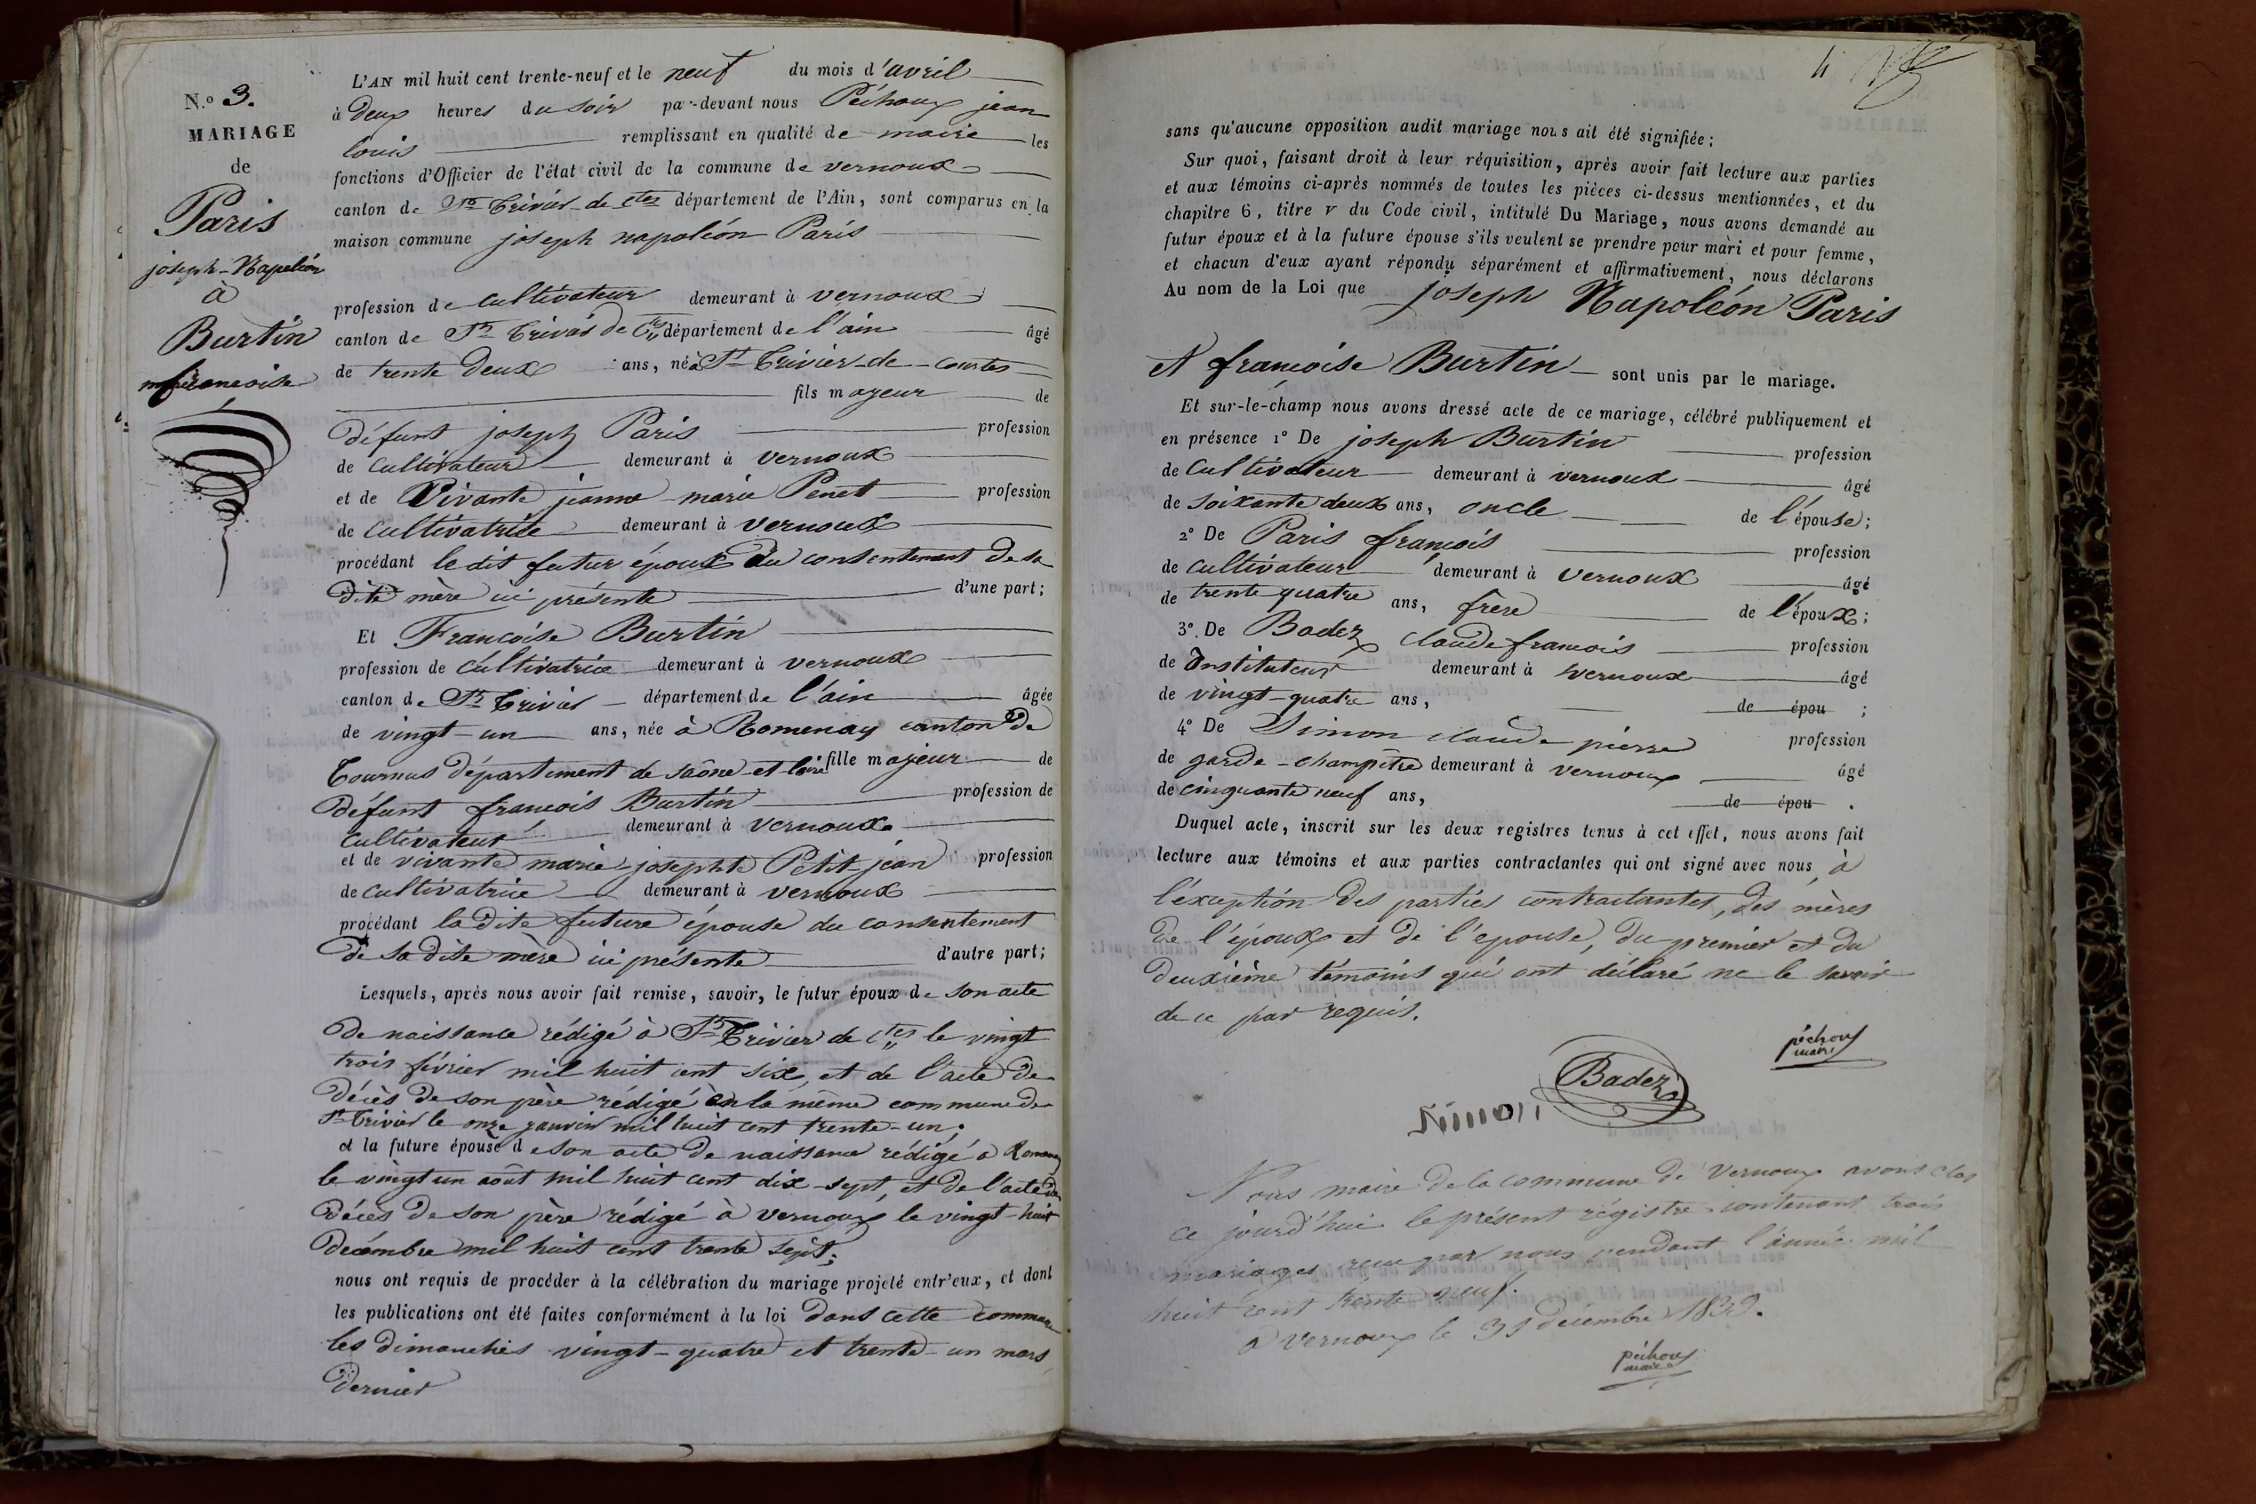 N.º 3.
MARIAGE
de
Paris
joseph-Napoléon
à
Burtin
francoise
L'AN mil huit cent trente-neuf et le neuf du mois d'avril
à deux heures du soir par-devant nous Péchoux jean
louis remplissant en qualité de maire les
fonctions d'Officier de l'état civil de la commune de vernoux
canton de St Trivier de Ctes département de l'Ain, sont comparus en la
maison commune joseph napoléon Paris
profession de cultivateur demeurant à vernoux
canton de St Trivier de Ctes département de l'ain âgé
de trente deux ans, né à St Trivier-de-courtes
fils majeur de
défunt joseph Paris profession
de cultivateur demeurant à vernoux
et de Vivante jeanne marie Penet profession
de cultivatrice demeurant à vernoux
procédant le dit futur époux du consentement de sa
dite mère ici présente d'une part;
Et Francoise Burtin
profession de cultivatrice demeurant à vernoux
canton de St Trivier département de l'ain âgée
de vingt-un ans, née à Romenay canton de
Tournus département de saône-et-loire fille majeur de
défunt francois Burtin profession de
cultivateur demeurant à vernoux
et de vivante marie josephte Petit-jean profession
de cultivatrice demeurant à vernoux
procédant la dite future épouse du consentement
de sa dite mère ici présente d'autre part;
Lesquels, après nous avoir fait remise, savoir, le futur époux de son acte
de naissance rédigé à St Trivier de Ctes le vingt
trois février mil huit cent six, et de l'acte de
décès de son père rédigé en la même commune de
St Trivier le onze janvier mil huit cent trente-un;
et la future épouse de son acte de naissance rédigé à Romenay
le vingt un août mil huit cent dix-sept, et de l'acte de
décès de son père rédigé à vernoux le vingt-huit
décembre mil huit cent trente sept;
nous ont requis de procéder à la célébration du mariage projeté entr'eux, et dont
les publications ont été faites conformément à la loi dans cette commune
les dimanches vingt-quatre et trente-un mars
dernier
4
sans qu'aucune opposition audit mariage nous ait été signifiée;
Sur quoi, faisant droit à leur réquisition, après avoir fait lecture aux parties
et aux témoins ci-après nommés de toutes les pièces ci-dessus mentionnées, et du
chapitre 6, titre v du Code civil, intitulé Du Mariage, nous avons demandé au
futur époux et à la future épouse s'ils veulent se prendre pour mari et pour femme,
et chacun d'eux ayant répondu séparément et affirmativement, nous déclarons
Au nom de la Loi que joseph Napoléon Paris
et francoise Burtin sont unis par le mariage.
Et sur-le-champ nous avons dressé acte de ce mariage, célébré publiquement et
en présence 1º De joseph Burtin profession
de cultivateur demeurant à vernoux âgé
de soixante deux ans, oncle de l'épouse;
2º De Paris francois profession
de cultivateur demeurant à vernoux âgé
de trente quatre ans, frère de l'époux;
3º De Badez claude francois profession
de instituteur demeurant à vernoux âgé
de vingt-quatre ans, de épou ;
4º De Simon claude pierre profession
de garde-champêtre demeurant à vernoux âgé
de cinquante neuf ans, de épou .
Duquel acte, inscrit sur les deux registres tenus à cet effet, nous avons fait
lecture aux témoins et aux parties contractantes qui ont signé avec nous, à
l'exception des parties contractantes, des mères
de l'époux et de l'epouse, du premier et du
deuxième témoins qui ont déclaré ne le savoir
de ce par requis.
péchoux
maire
Badez
Simon
Nous maire de la commune de Vernoux avons clos
ce jourd'hui le présent régistre contenant trois
mariages reçu par nous pendant l'année mil
huit cent trente neuf.
a Vernoux le 31 décembre 1839.
péchoux
maire